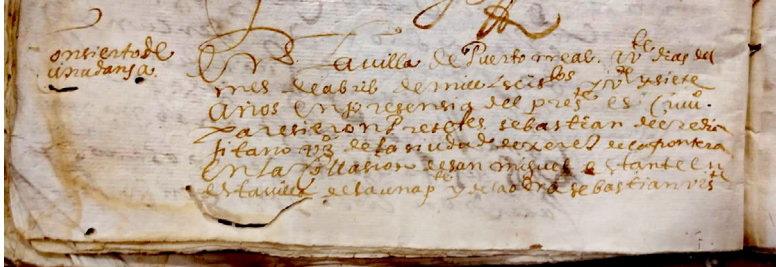 onsierto de
una dansa
En la villa de Puerto rreal. dias del
mes de abril de mill y seis.os y siete
años en presensia del pres.te es.
paresieron presetes sebastian de
gitano vz.o de la siudad de xeres de la frontera
en la collasion de san miguel estante en
esta villa de la una p.te y de la otra sebastian